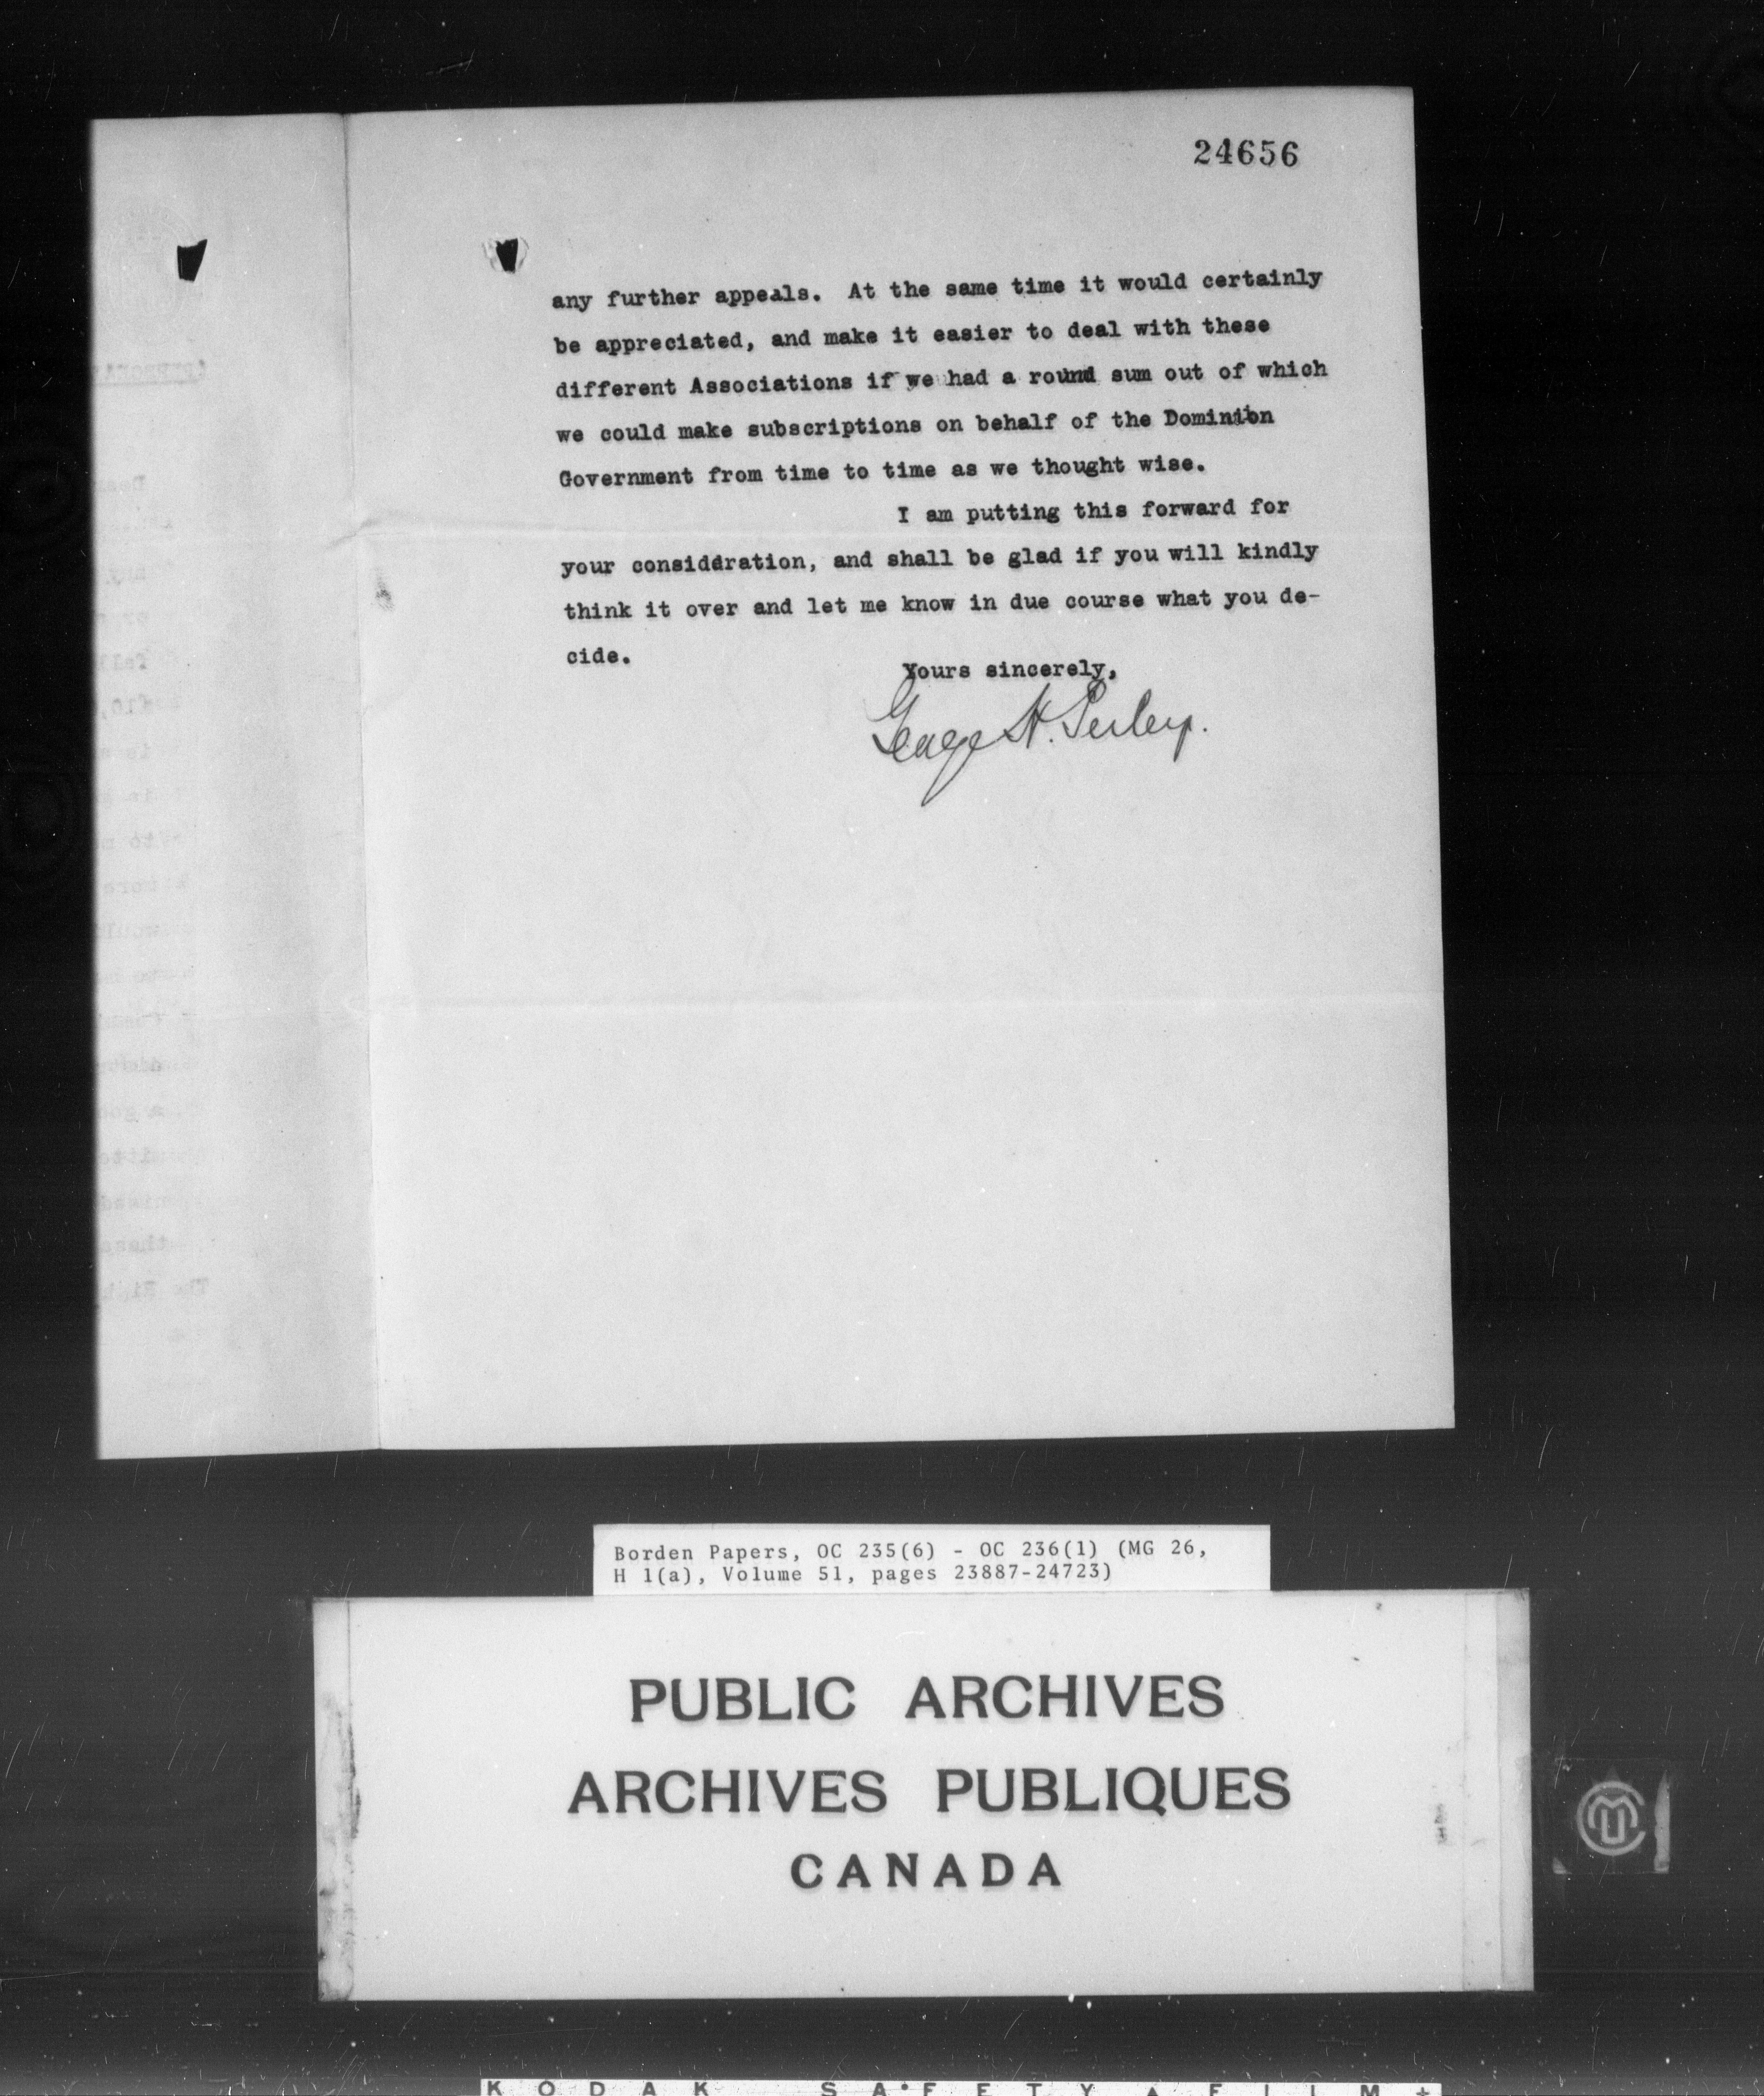 24656
any further appeals. At the same time it would certainly
be appreciated, and make it easier to deal with these
different Associations if we had a round sum out of which
we could make subscriptions on behalf of the Dominion
Government from time to time as we thought wise.
I am putting this forward for
your consideration, and shall be glad if you will kindly
think it over and let me know in due course what you de-
cide.
Yours sincerely,
George H. Perley.
Borden Papers, OC 235(6) - OC 236(1) (MG 26,
H 1(a), Volume 51, pages 23887-24723)
PUBLIC ARCHIVES
ARCHIVES PUBLIQUES
CANADA
KODAK SAFETY FILM